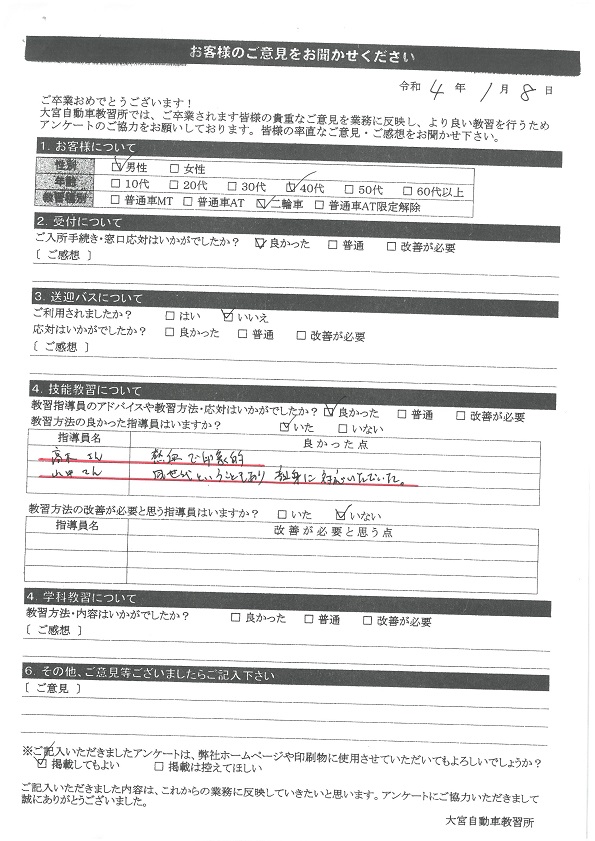 お客様のご意見をお聞かせください
令和 4 年 1 月 8 日
ご卒業おめでとうございます！
大宮自動車教習所では、ご卒業されます皆様の貴重なご意見を業務に反映し、より良い教習を行うため
アンケートのご協力をお願いしております。皆様の率直なご意見・ご感想をお聞かせ下さい。
1. お客様について
性別 ☑男性 □女性
年齢 □10代 □20代 □30代 ☑40代 □50代 □60代以上
教習種別 □普通車MT □普通車AT ☑二輪車 □普通車AT限定解除
2. 受付について
ご入所手続き・窓口応対はいかがでしたか？ ☑良かった □普通 □改善が必要
〔 ご感想 〕
3. 送迎バスについて
ご利用されましたか？ □はい ☑いいえ
応対はいかがでしたか？ □良かった □普通 □改善が必要
〔 ご感想 〕
4. 技能教習について
教習指導員のアドバイスや教習方法・応対はいかがでしたか？ ☑良かった □普通 □改善が必要
教習方法の良かった指導員はいますか？ ☑いた □いない
指導員名 良かった点
高木さん 熱血で印象的
山田さん 同世代ということもあり 親身に対応いただいた。
教習方法の改善が必要と思う指導員はいますか？ □いた ☑いない
指導員名 改善が必要と思う点
4. 学科教習について
教習方法・内容はいかがでしたか？ □良かった □普通 □改善が必要
〔 ご感想 〕
6. その他、ご意見等ございましたらご記入下さい
〔 ご意見 〕
※ご記入いただきましたアンケートは、弊社ホームページや印刷物に使用させていただいてもよろしいでしょうか？
☑掲載してもよい □掲載は控えてほしい
ご記入いただきました内容は、これからの業務に反映していきたいと思います。アンケートにご協力いただきまして
誠にありがとうございました。
大宮自動車教習所